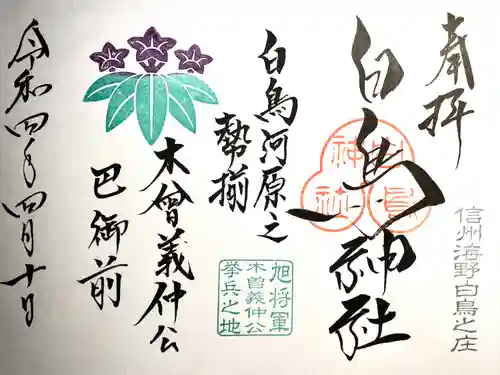 奉拝
信州海野白鳥之庄
白鳥神社
白鳥神社
白鳥河原之
勢揃
旭将軍
木曽義仲公
挙兵之地
木曾義仲公
巴御前
令和四年四月十日